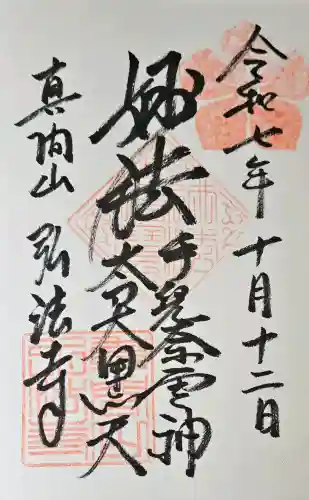 令和七年十月十二日
妙法
手児奈霊神
大黒天
真間山弘法寺